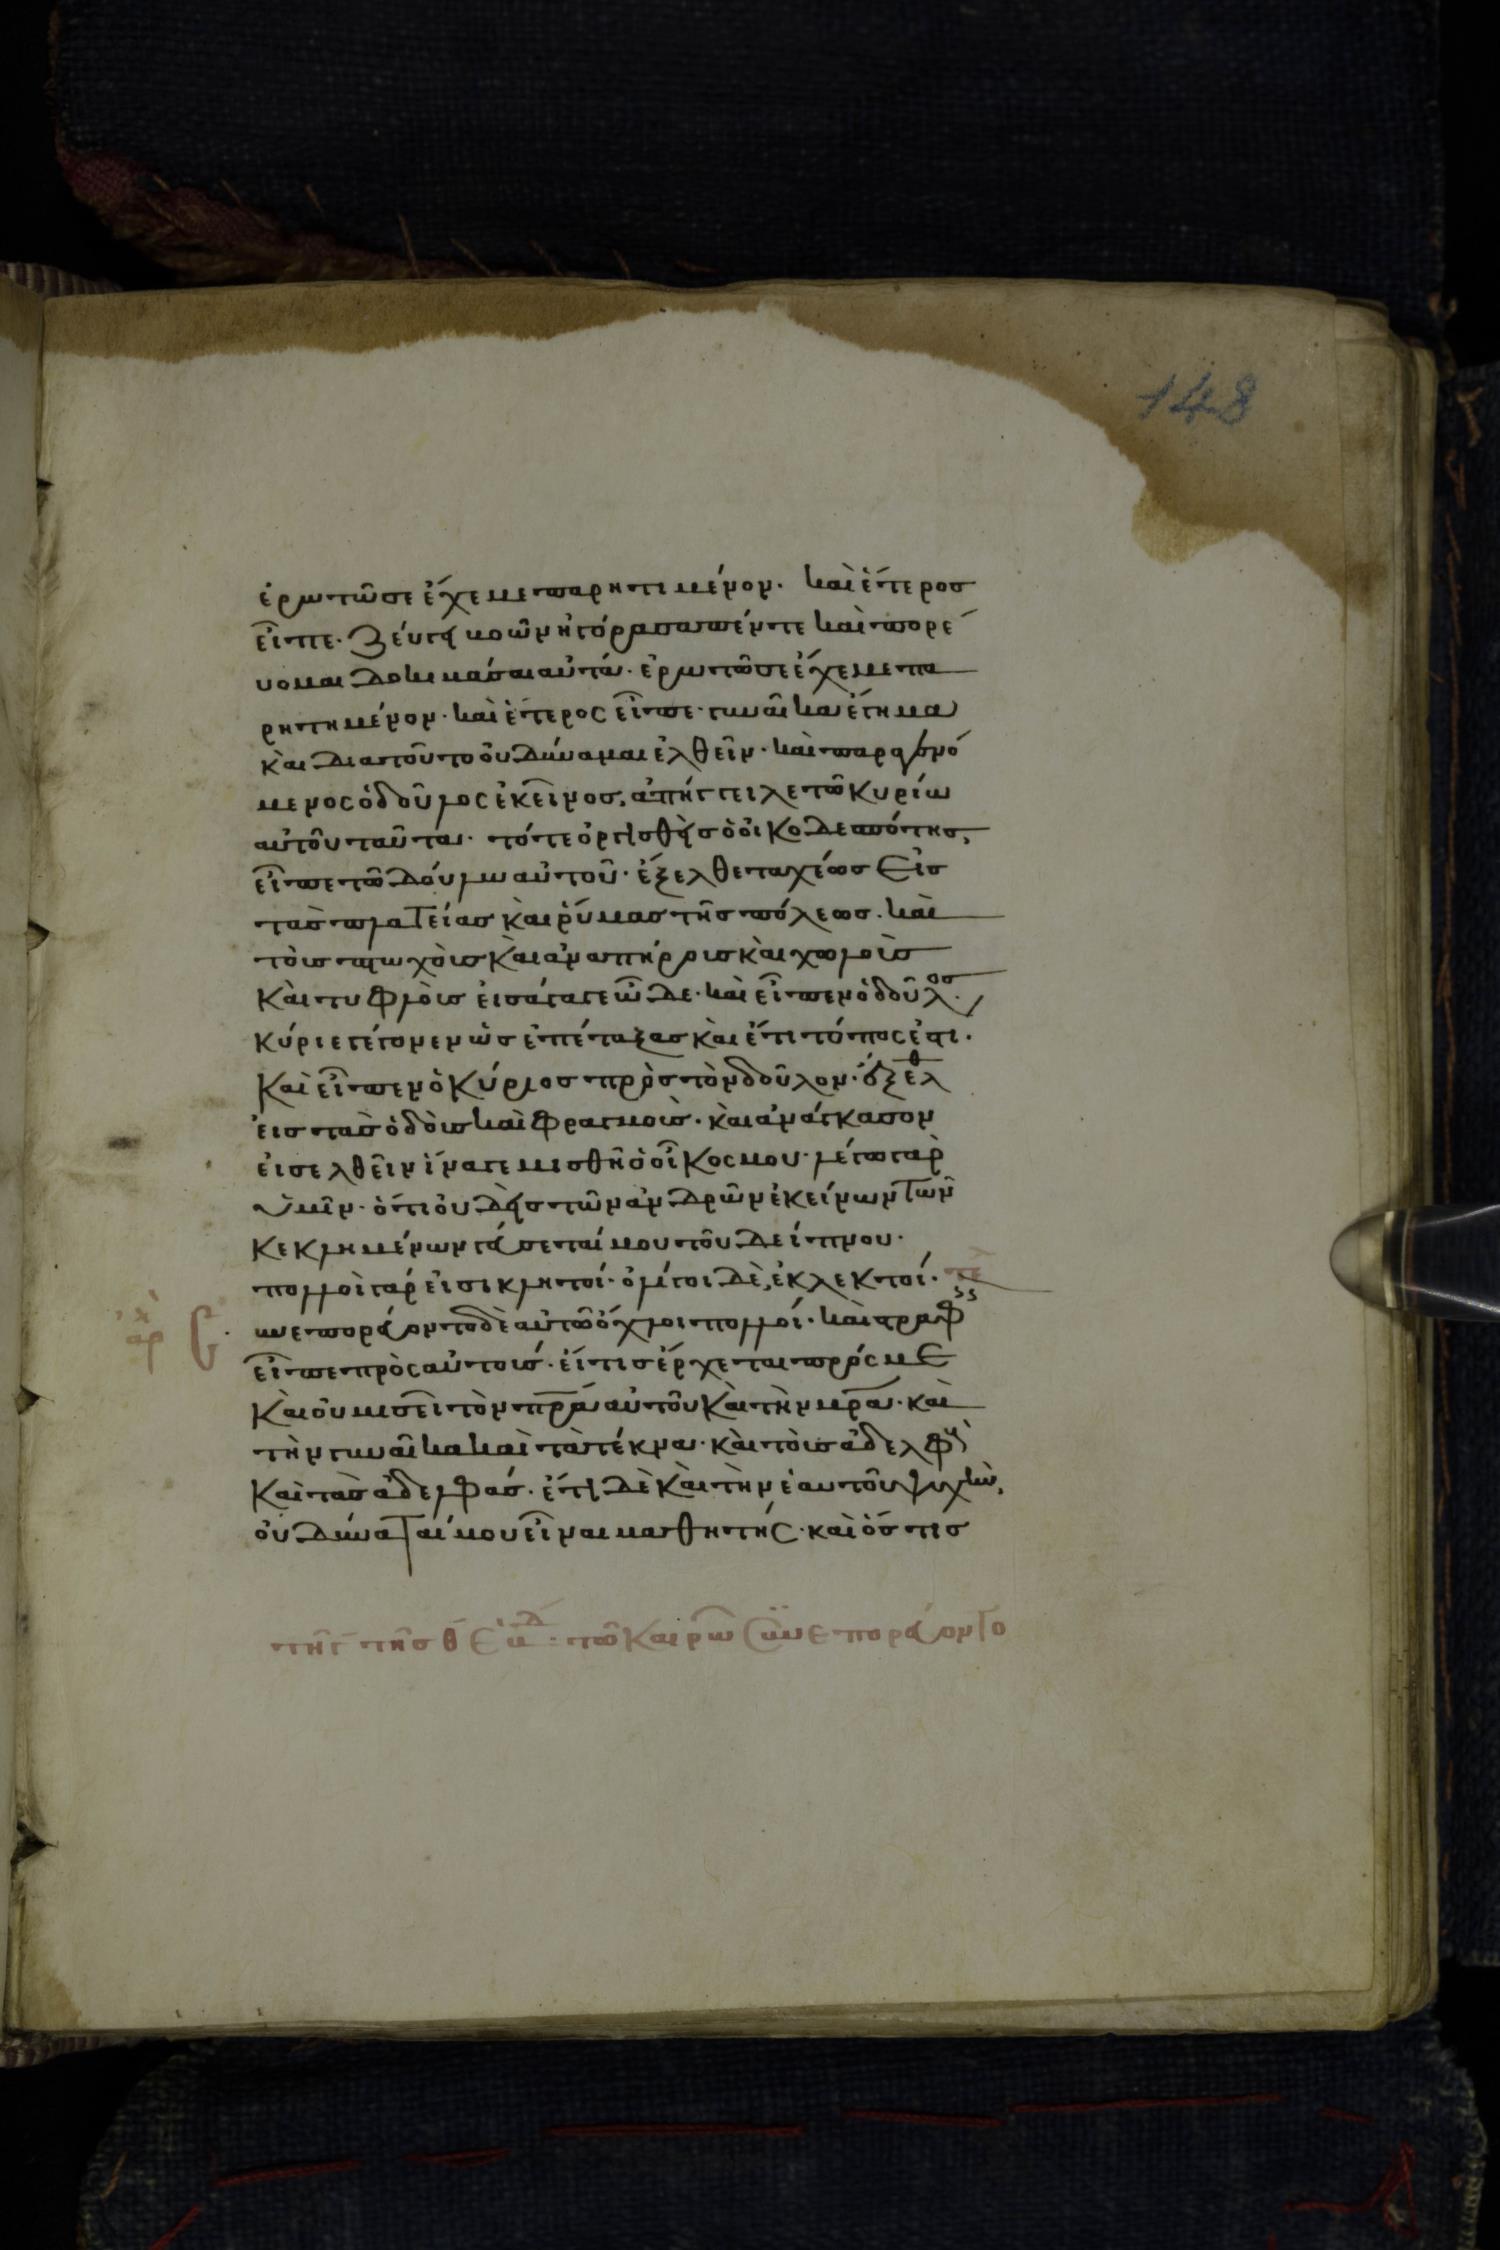 148
ἐρωτῶ σε ἔχε με παρητιμένον. καὶ ἕτερος
εἶπε. ζεύγη βοῶν ἠγόρασα πέντε καὶ πορεύ
ομαι δοκιμάσαι αὐτά. ἐρωτῶ σε ἔχε με πα
ρητημένον. καὶ ἕτερος εἶπε. γυναῖκα ἔγημα
καὶ διατοῦτο οὐ δύναμαι ἐλθεῖν. καὶ παραγενό
μενος ὁ δοῦλος ἐκεῖνος, ἀπήγγειλε τῶ κυρίω
αὐτοῦ ταῦτα. τότε ὀργισθεὶς ὁ οἰκοδεσπότης,
εἶπε τῶ δούλω αὐτοῦ. ἔξελθε ταχέως εἰς
τὰς πλατείας καὶ ῥύμας τῆς πόλεως. καὶ
τοὺς πτωχοὺς καὶ ἀναπήρους καὶ χωλοὺς
καὶ τυφλοὺς εἰσάγαγε ὧδε. καὶ εἶπεν ὁ δοῦλος.
κύριε γέγονεν ὡς ἐπέταξας καὶ ἔτι τόπος ἐστι.
καὶ εἶπεν ὁ κύριος πρὸς τὸν δοῦλον. ἔξελθ
εἰς τὰς ὁδοὺς καὶ φραγμούς. καὶ ἀνάγκασον
εἰσελθεῖν ἵνα γεμισθῆ ὁ οἶκος μου. λέγω γὰρ
ὑμῖν. ὅτι οὐδεὶς τῶν ἀνδρῶν ἐκείνων τῶν
κεκλημένων γεύσεταί μου τοῦ δείπνου.
πολλοὶ γάρ εἰσι κλητοί. ὀλίγοι δὲ, ἐκλεκτοί. τε
ἀρχ
υνεπορεύοντο δὲ αὐτῶ ὄχλοι πολλοί. καὶ στραφεὶς
εἶπε πρὸς αὐτούς. εἴ τις ἔρχεται πρός με
καὶ οὐ μισεῖ τὸν πρα αὐτοῦ καὶ τὴν μρα. καὶ
τὴν γυναῖκα καὶ τὰ τέκνα. καὶ τοὺς ἀδελφοὺς
καὶ τὰς ἀδελφάς. ἔτι δὲ καὶ τὴν ἑαυτοῦ ψυχὴν,
οὐ δύναταί μου εἶναι μαθητής. καὶ ὅστις
τῆ γ τῆς θ ἑβδ. τῶ καιρῶ συνεπορεύοντο